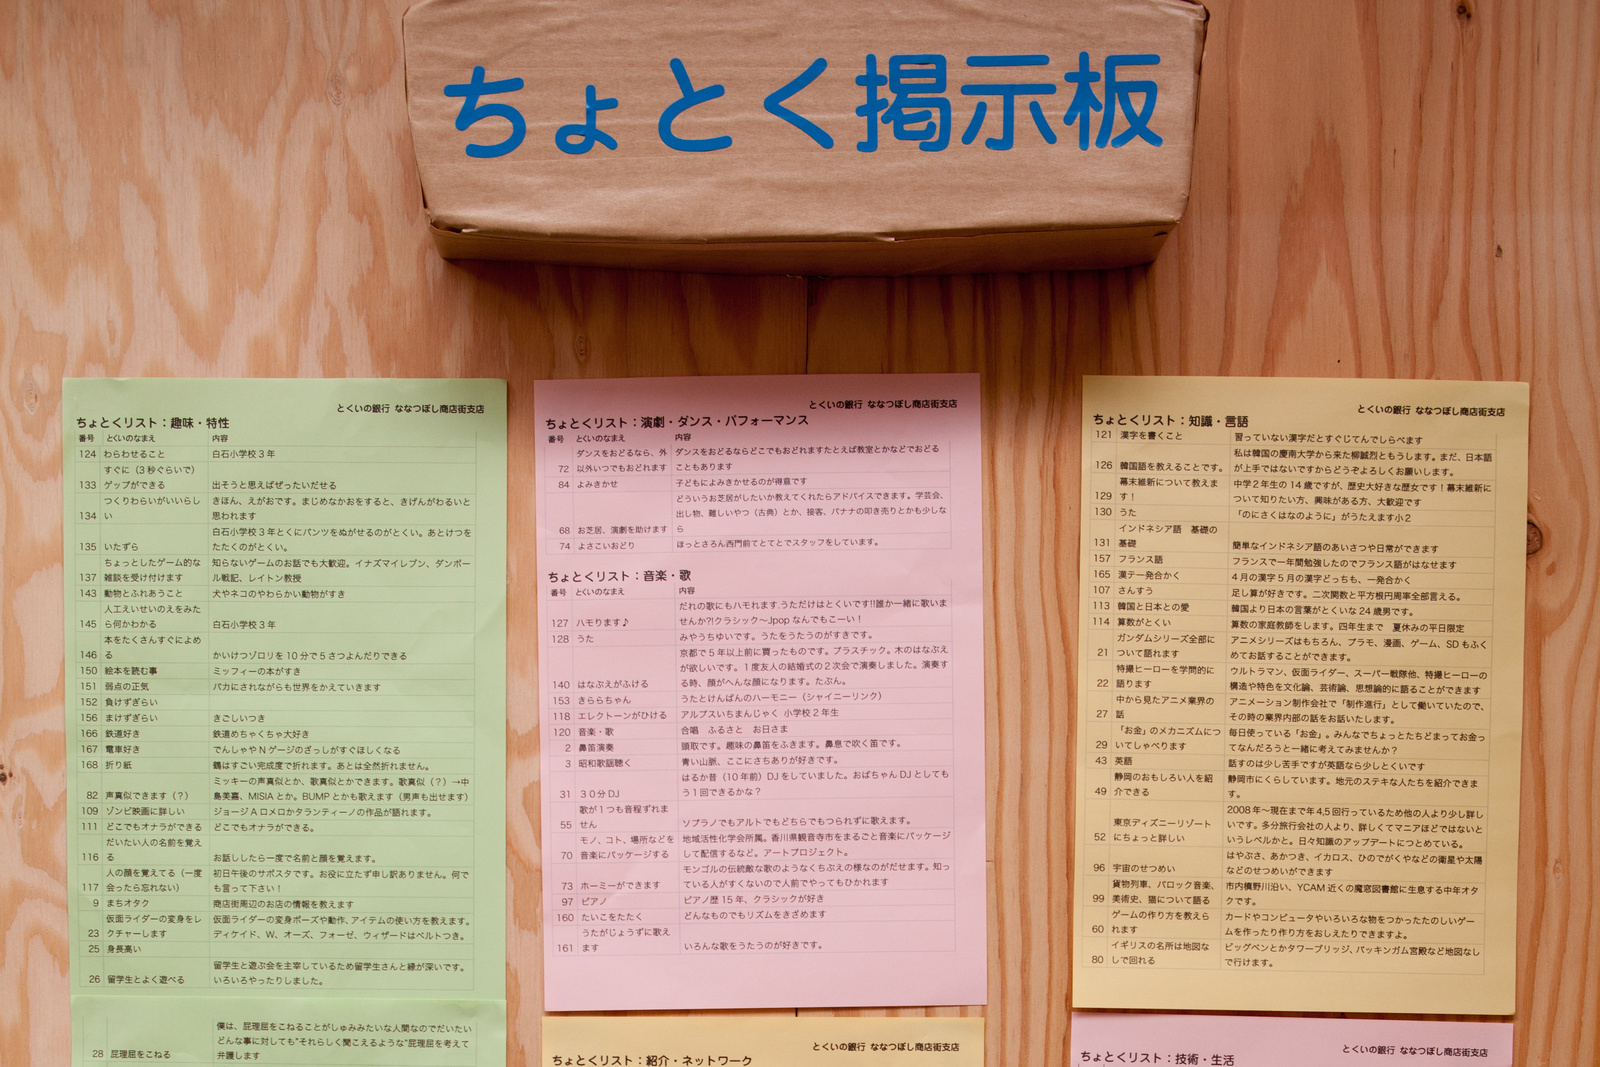 ちょとく掲示板
とくいの銀行 ななつぼし商店街支店
ちょとくリスト：趣味・特性
番号 とくいのなまえ 内容
124 わらわせること 白石小学校３年
すぐに（３秒ぐらいで）
133 ゲップができる 出そうと思えばぜったいだせる
つくりわらいがいいらし きほん、えがおです。まじめなかおをすると、きげんがわるいと
134 い 思われます
白石小学校３年とくにパンツをぬがせるのがとくい。あとけつを
135 いたずら たたくのがとくい。
ちょっとしたゲーム的な 知らないゲームのお話でも大歓迎。イナズマイレブン、ダンボー
137 雑談を受け付けます ル戦記、レイトン教授
143 動物とふれあうこと 犬やネコのやわらかい動物がすき
人工えいせいのえをみた
145 ら何かわかる 白石小学校３年
本をたくさんすぐによめ
146 る かいけつゾロリを 10 分で５さつよんだりできる
150 絵本を読む事 ミッフィーの本がすき
151 弱点の正気 バカにされながらも世界をかえていきます
152 負けずぎらい
156 まけずぎらい きごしいつき
166 鉄道好き 鉄道めちゃくちゃ大好き
167 電車好き でんしゃや N ゲージのざっしがすぐほしくなる
168 折り紙 鶴はすごい完成度で折れます。あとは全然折れません。
ミッキーの声真似とか、歌真似とかできます。歌真似（？）→中
82 声真似できます（？） 島美嘉、MISIA とか。BUMP とかも歌えます（男声も出せます）
109 ゾンビ映画に詳しい ジョージ A ロメロかタランティーノの作品が語れます。
111 どこでもオナラができる どこでもオナラができる。
だいたい人の名前を覚え
116 る お話ししたら一度で名前と顔を覚えます。
人の顔を覚えてる（一度 初日午後のサポスタです。お役に立たず申し訳ありません。何で
117 会ったら忘れない） も言って下さい！
9 まちオタク 商店街周辺のお店の情報を教えます
仮面ライダーの変身をレ 仮面ライダーの変身ポーズや動作、アイテムの使い方を教えます。
23 クチャーします ディケイド、W、オーズ、フォーゼ、ウィザードはベルトつき。
25 身長高い
留学生と遊ぶ会を主宰しているため留学生さんと縁が深いです。
26 留学生とよく遊べる いろいろやったりしました。
僕は、屁理屈をこねることがしゅみみたいな人間なのでだいたい
どんな事に対しても”それらしく聞こえるような”屁理屈を考えて
28 屁理屈をこねる 弁護します
とくいの銀行 ななつぼし商店街支店
ちょとくリスト：演劇・ダンス・パフォーマンス
番号 とくいのなまえ 内容
ダンスをおどるなら、外 ダンスをおどるならどこでもおどれますたとえば教室とかなどでおどる
72 以外いつでもおどれます こともあります
84 よみきかせ 子どもによみきかせるのが得意です
どういうお芝居がしたいか教えてくれたらアドバイスできます。学芸会、
出し物、難しいやつ（古典）とか、接客、バナナの叩き売りとかも少しな
68 お芝居、演劇を助けます ら
74 よさこいおどり ほっとさろん西門前てとてとでスタッフをしています。
ちょとくリスト：音楽・歌
番号 とくいのなまえ 内容
だれの歌にもハモれます.うただけはとくいです!!誰か一緒に歌いま
127 ハモります♪ せんか?!クラシック〜Jpop なんでもこーい！
128 うた みやうちゆいです。うたをうたうのがすきです。
京都で５年以上前に買ったものです。プラスチック。木のはなぶえ
が欲しいです。１度友人の結婚式の２次会で演奏しました。演奏す
140 はなぶえがふける る時、顔がへんな顔になります。たぶん。
153 きららちゃん うたとけんばんのハーモニー（シャイニーリンク）
118 エレクトーンがひける アルプスいちまんじゃく 小学校２年生
120 音楽・歌 合唱 ふるさと お日さま
2 鼻笛演奏 頭取です。趣味の鼻笛をふきます。鼻息で吹く笛です。
3 昭和歌謡聴く 青い山脈、ここにさちありが好きです。
はるか昔（10 年前）DJ をしていました。おばちゃん DJ としても
31 ３０分 DJ う１回できるかな？
歌が１つも音程ずれま
55 せん ソプラノでもアルトでもどちらでもつられずに歌えます。
モノ、コト、場所などを 地域活性化学会所属。香川県観音寺市をまるごと音楽にパッケージ
70 音楽にパッケージする して配信するなど。アートプロジェクト。
モンゴルの伝統敵な歌のようなくちぶえの様なのがだせます。知っ
73 ホーミーができます ている人がすくないので人前でやってもひかれます
97 ピアノ ピアノ歴 15 年、クラシックが好き
160 たいこをたたく どんなものでもリズムをきざめます
うたがじょうずに歌え
161 ます いろんな歌をうたうのが好きです。
とくいの銀行 ななつぼし商店街支店
ちょとくリスト：紹介・ネットワーク
とくいの銀行 ななつぼし商店街支店
ちょとくリスト：知識・言語
121 漢字を書くこと 習っていない漢字だとすぐじてんでしらべます
私は韓国の慶南大学から来た柳誠烈ともうします。まだ、日本語
126 韓国語を教えることです。 が上手ではないですからどうぞよろしくお願いします。
幕末維新について教えま 中学２年生の 14 歳ですが、歴史大好きな歴女です！幕末維新に
129 す！ ついて知りたい方、興味がある方、大歓迎です
130 うた 「のにさくはなのように」がうたえます小２
インドネシア語 基礎の
131 基礎 簡単なインドネシア語のあいさつや日常ができます
157 フランス語 フランスで一年間勉強したのでフランス語がはなせます
165 漢テ一発合かく ４月の漢字５月の漢字どっちも、一発合かく
107 さんすう 足し算が好きです。二次関数と平方根円周率全部言える。
113 韓国と日本との愛 韓国より日本の言葉がとくいな 24 歳男です。
114 算数がとくい 算数の家庭教師をします。四年生まで 夏休みの平日限定
ガンダムシリーズ全部に アニメシリーズはもちろん、プラモ、漫画、ゲーム、SD もふく
21 ついて語れます めてお話することができます。
特撮ヒーローを学問的に ウルトラマン、仮面ライダー、スーパー戦隊他、特撮ヒーローの
22 語ります 構造や特色を文化論、芸術論、思想論的に語ることができます
中から見たアニメ業界の アニメーション制作会社で「制作進行」として働いていたので、
27 話 その時の業界内部の話をお話いたします。
「お金」のメカニズムにつ 毎日使っている「お金」。みんなでちょっとたちどまってお金っ
29 いてしゃべります てなんだろうと一緒に考えてみませんか？
43 英語 話すのは少し苦手ですが英語なら少しとくいです
静岡のおもしろい人を紹 静岡市にくらしています。地元のステキな人たちを紹介できま
49 介できる す。
2008 年〜現在まで 4,5 回行っているため他の人より少し詳し
東京ディズニーリゾート いです。多分旅行会社の人より、詳しくてマニアほどではないと
52 にちょっと詳しい いうレベルかと。日々知識のアップデートにつとめている。
はやぶさ、あかつき、イカロス、ひのでがくやなどの衛星や太陽
96 宇宙のせつめい などのせつめいができます。
貨物列車、バロック音楽、 市内横野川沿い、YCAM 近くの魔窓図書館に生息する中年オタ
99 美術史、猫について語る クです。
ゲームの作り方を教えら カードやコンピュータやいろいろな物をつかったたのしいゲー
60 れます ムを作ったり作り方をおしえたりできますよ。
イギリスの名所は地図な ビッグベンとかタワーブリッジ、バッキンガム宮殿など地図なし
80 しで回れる で行けます。
とくいの銀行 ななつぼし商店街支店
ちょとくリスト：技術・生活